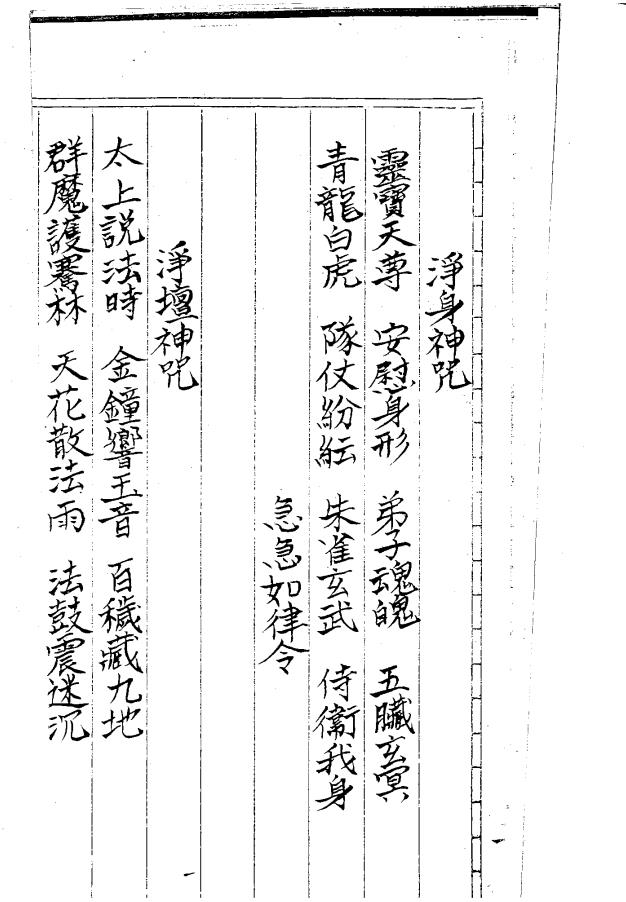 淨身神咒
靈寶天尊 安慰身形 弟子魂魄 五臟玄冥
青龍白虎 隊仗紛紜 朱雀玄武 侍衛我身
急急如律令
淨壇神咒
太上説法時 金鐘響玉音 百穢藏九地
群魔護騫林 天花散法雨 法鼓震迷沉